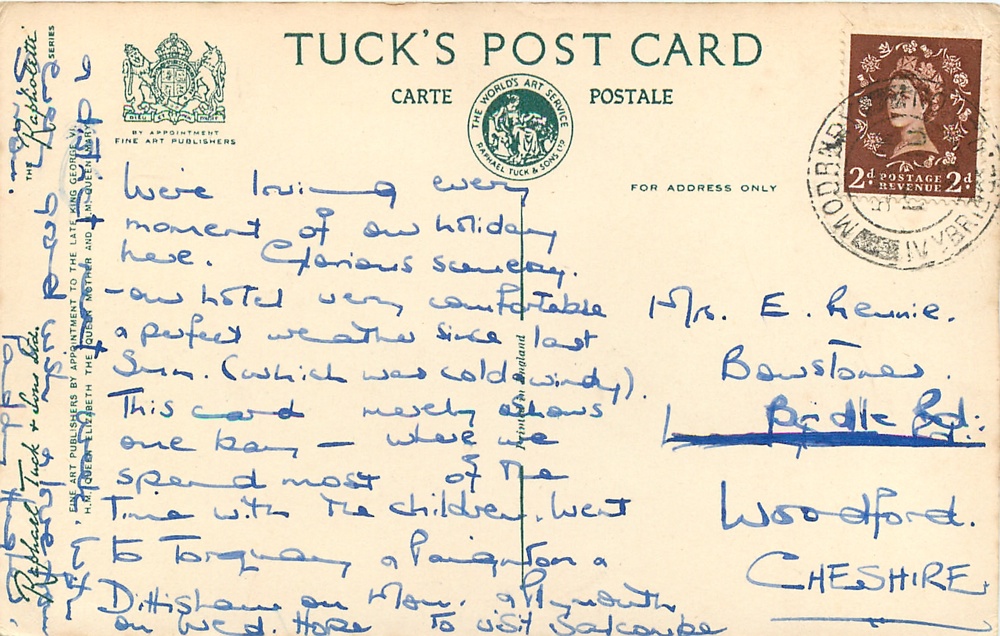 TUCK'S POST CARD
CARTE POSTALE
BY APPOINTMENT
FINE ART PUBLISHERS
THE WORLD'S ART SERVICE
RAPHAEL TUCK & SONS LTD
FOR ADDRESS ONLY
2d POSTAGE REVENUE 2d
MODBURY
IVYBRIDGE
We're loving every
moment of our holiday
here. Glorious scenery.
-our hotel very comfortable
& perfect weather since last
Sun. (which was cold & windy).
This card merely shows
one bay – where we
spend most of the
time with the children. Went
to Torquay & Paignton &
Dittisham on Mon. & Plymouth
on Wed. Hope to visit Salcombe
Mrs. E. Rennie.
Bowstones.
Woodford.
CHESHIRE.
Printed in England
THE "Raphotette" SERIES
Raphael Tuck & Sons Ltd.
FINE ART PUBLISHERS BY APPOINTMENT TO THE LATE KING GEORGE VI,
H.M. QUEEN ELIZABETH THE QUEEN MOTHER AND H.M. QUEEN MARY